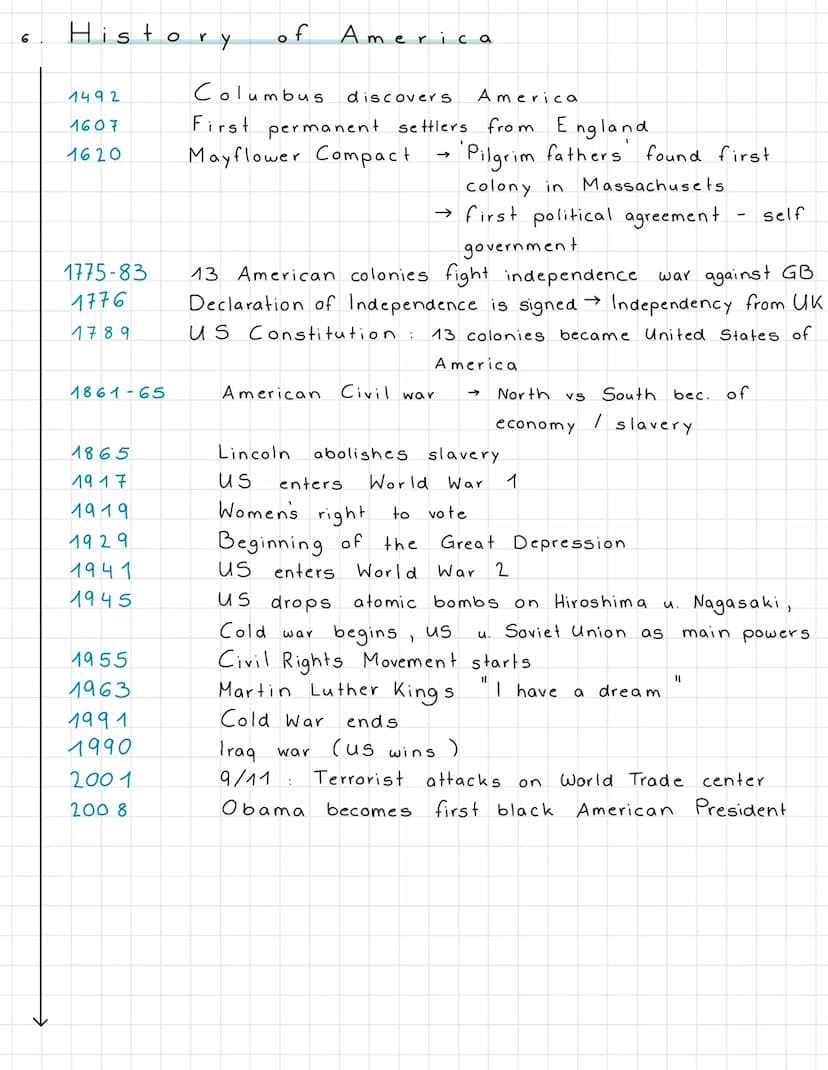 6. History of America
1492 Columbus discovers America
1607 First permanent settlers from England
1620 Mayflower Compact → 'Pilgrim fathers' found first
colony in Massachusets
→ first political agreement - self
government
1775-83 13 American colonies fight independence war against GB
1776 Declaration of Independence is signed → Independency from UK
1789 US Constitution : 13 colonies became United States of
America
1861-65 American Civil war → North vs South bec. of
economy / slavery
1865 Lincoln abolishes slavery
1917 US enters World War 1
1919 Women's right to vote
1929 Beginning of the Great Depression
1941 US enters World War 2
1945 US drops atomic bombs on Hiroshima u. Nagasaki,
Cold war begins, US u. Soviet Union as main powers
1955 Civil Rights Movement starts
1963 Martin Luther Kings "I have a dream"
1991 Cold War ends
1990 Iraq war (US wins)
2001 9/11 : Terrorist attacks on World Trade center
2008 Obama becomes first black American President